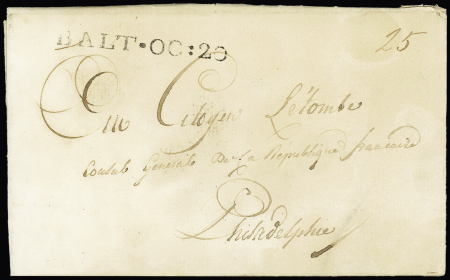 BALT•OC:20
25
Au Citoyen Létombe
Consul Général De la République française
Philadelphie